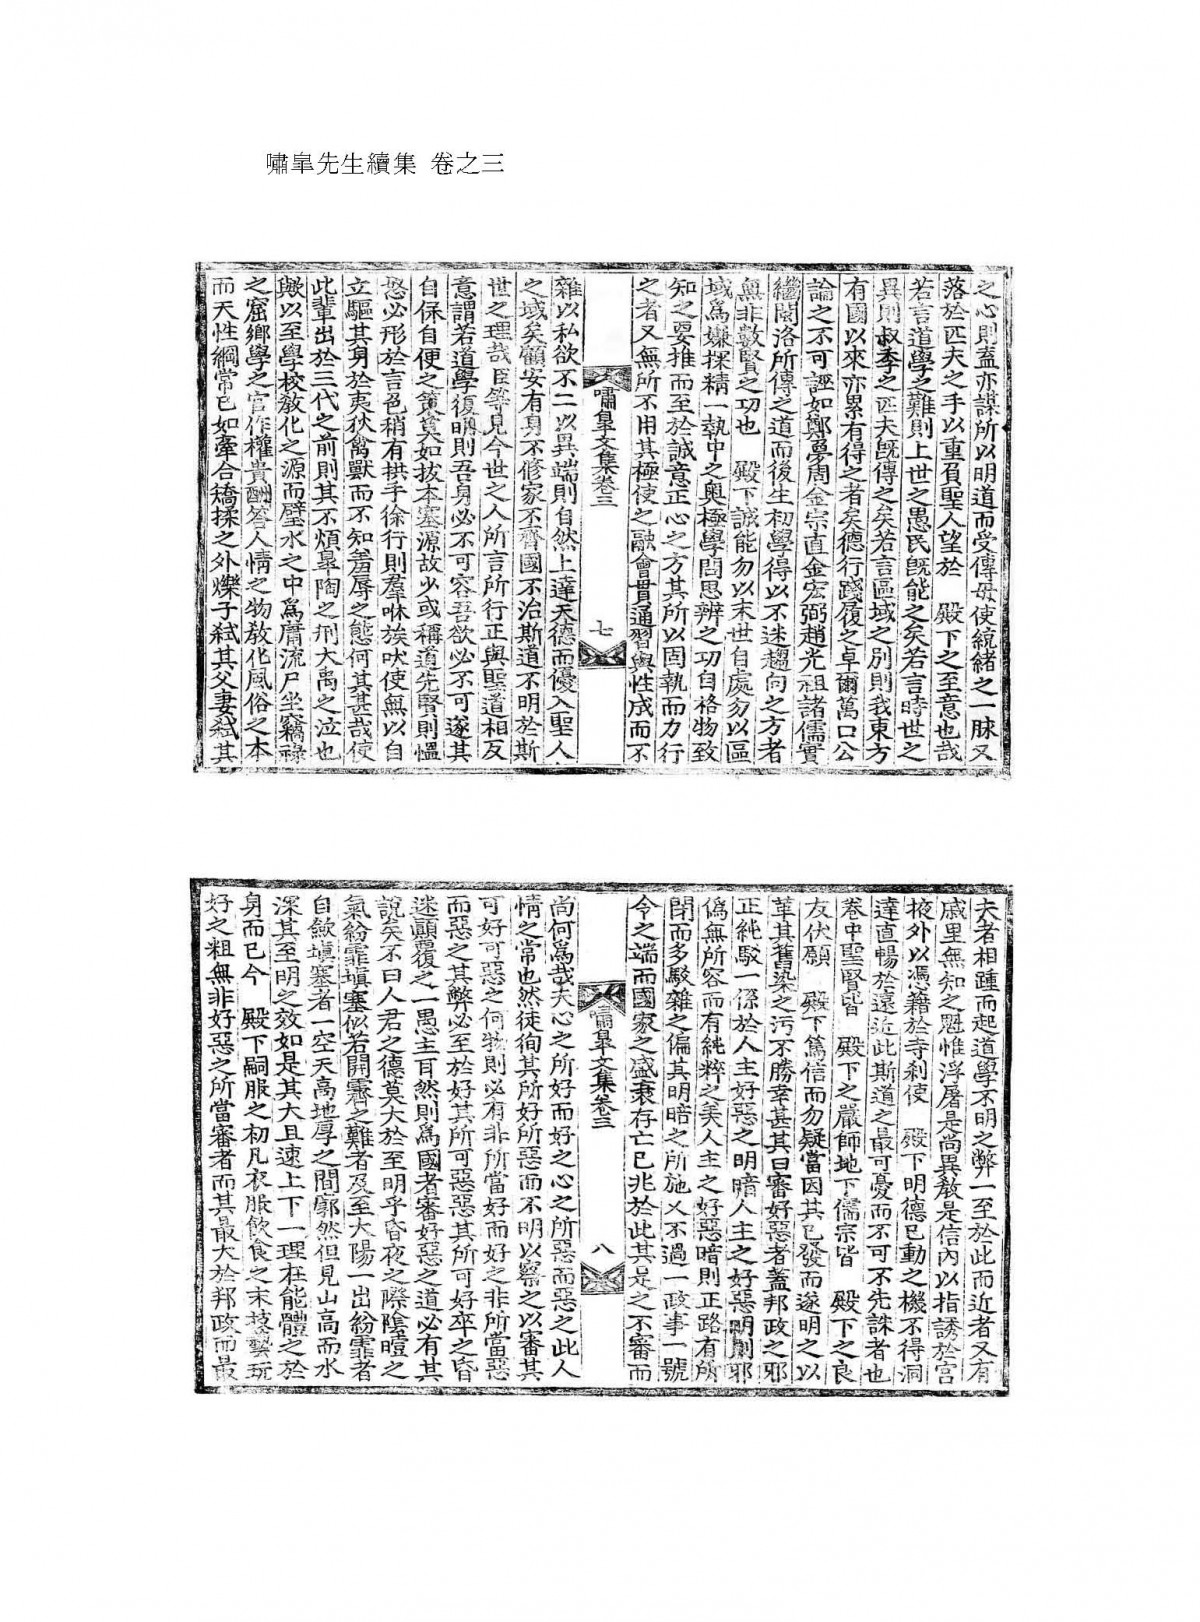 嘯皐先生續集 卷之三
之心則蓋亦謀所以明道而受傳毋使統緒之一脉又
落於匹夫之手以重負聖人望於 殿下之至意也哉
若言道學之難則上世之愚民旣能之矣若言時世之
異則叔季之匹夫旣傳之矣若言區域之別則我東方
有國以來亦累有得之者矣德行踐履之卓爾萬口公
論之不可誣如鄭夢周金宗直金宏弼趙光祖諸儒實
繼閩洛所傳之道而後生初學得以不迷趨向之方者
無非數賢之功也 殿下誠能勿以末世自處勿以區
域爲嫌探精一執中之奧極學問思辨之功自格物致
知之要推而至於誠意正心之方其所以固執而力行
之者又無所不用其極使之融會貫通習與性成而不
嘯皐文集卷三 七
雜以私欲不二以異端則自然上達天德而優入聖人
之域矣顧安有身不修家不齊國不治斯道不明於斯
世之理哉臣等見今世之人所言所行正與聖道相反
意謂若道學復明則吾身必不可容吾欲必不可遂其
自保自便之策莫如拔本塞源故少或稱道先賢則慍
怒必形於言色稍有拱手徐行則羣咻族吠使無以自
立驅其身於夷狄禽獸而不知羞辱之態何其甚哉使
此輩出於三代之前則其不煩皐陶之刑大禹之泣也
歟以至學校敎化之源而璧水之中爲庸流尸坐竊祿
之窟鄕學之官作權貴酬答人情之物敎化風俗之本
而天性綱常已如牽合矯揉之外爍子弑其父妻弑其
夫者相踵而起道學不明之弊一至於此而近者又有
戚里無知之魁惟浮屠是尙異敎是信內以指誘於宮
掖外以憑籍於寺刹使 殿下明德已動之機不得洞
達直暢於遠近此斯道之最可憂而不可不先誅者也
卷中聖賢皆 殿下之嚴師地下儒宗皆 殿下之良
友伏願 殿下篤信而勿疑當因其已發而遂明之以
革其舊染之污不勝幸甚其曰審好惡者蓋邦政之邪
正純駁一係於人主好惡之明暗人主之好惡明則邪
僞無所容而有純粹之美人主之好惡暗則正路有所
閉而多駁雜之偏其明暗之所施又不過一政事一號
令之端而國家之盛衰存亡已兆於此其是之不審而
嘯皐文集卷三 八
尙何爲哉夫心之所好而好之心之所惡而惡之此人
情之常也然徒徇其所好所惡而不明以察之以審其
可好可惡之何物則必有非所當好而好之非所當惡
而惡之其弊必至於好其所可惡惡其所可好卒之昏
迷顚覆之一愚主耳然則爲國者審好惡之道必有其
說矣不曰人君之德莫大於至明乎昏夜之際陰曀之
氣紛霏塡塞似若開霽之難者及至大陽一出紛霏者
自歛塡塞者一空天高地厚之間廓然但見山高而水
深其至明之效如是其大且速上下一理在能體之於
身而已今 殿下嗣服之初凡衣服飮食之末技藝玩
好之粗無非好惡之所當審者而其最大於邦政而最